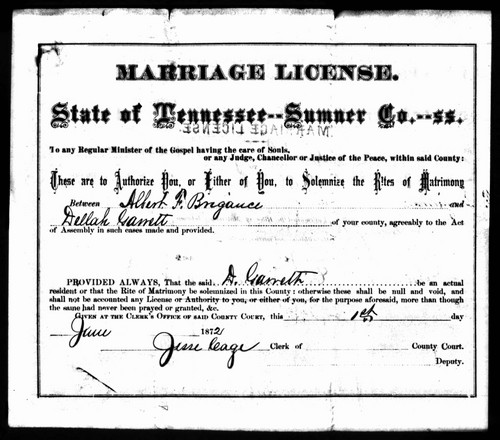 MARRIAGE LICENSE.
State of Tennessee--Sumner Co.--ss.
MARRIAGE LICENSE
To any Regular Minister of the Gospel having the care of Souls,
or any Judge, Chancellor or Justice of the Peace, within said County:
These are to Authorize You, or Either of You, to Solemnize the Rites of Matrimony
Between Albert F. Brigance and
Dellah Garrett of your county, agreeably to the Act
of Assembly in such cases made and provided.
PROVIDED ALWAYS, That the said D. Garreth be an actual
resident or that the Rite of Matrimony be solemnized in this County: otherwise these shall be null and void, and
shall not be accounted any License or Authority to you, or either of you, for the purpose aforesaid, more than though
the same had never been prayed or granted, &c.
GIVEN AT THE CLERK'S OFFICE OF SAID COUNTY COURT, this 1st day
June 1872
Jesse Cage Clerk of County Court.
Deputy.